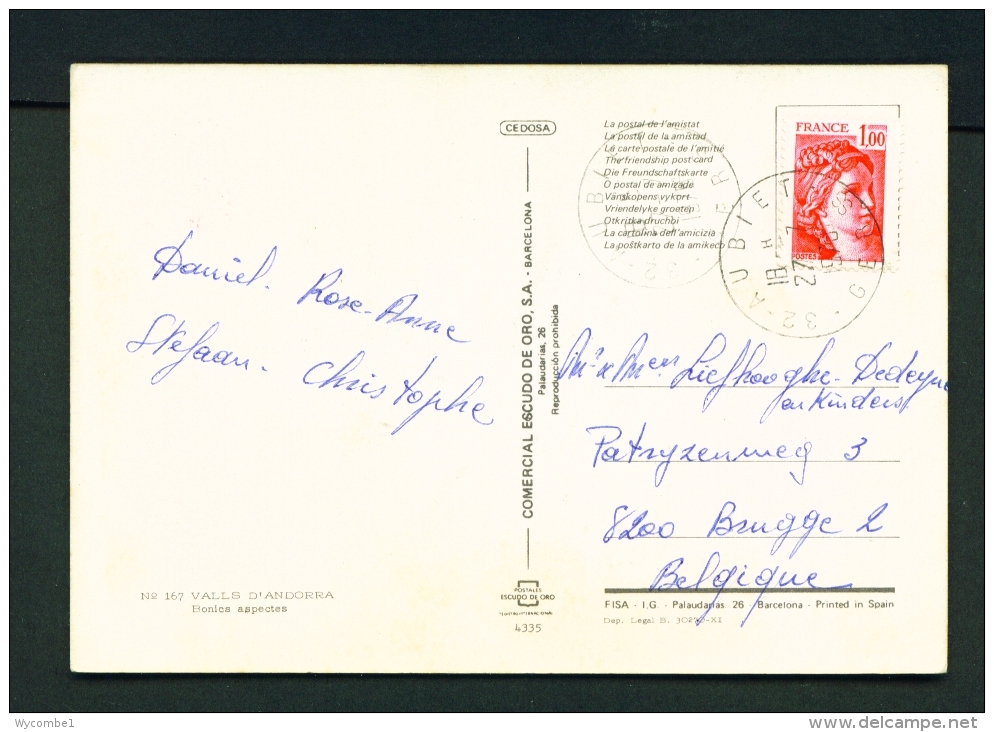 CEDOSA
La postal de l'amistat
La postal de la amistad
La carte postale de l'amitié
The friendship post card
Die Freundschaftskarte
O postal de amizade
Vänskapens vykort
Vriendelyke groeten
Otkritka druchbi
La cartolina dell'amicizia
La poŝtkarto de la amikeco
FRANCE 1,00
POSTES
32 · AUBIET · GERS
18 H
27 - 7
Daniel. Rose-Anne
Stefaan - Christophe
COMERCIAL ESCUDO DE ORO, S.A. - BARCELONA
Palaudarias, 26
Reproducción prohibida
Liefhooghe - Dedeyne
en Kinders
Patryzenweg 3
8200 Brugge 2
Belgique
Nº 167 VALLS D'ANDORRA
Bonics aspectes
POSTALES
ESCUDO DE ORO
4335
FISA - I.G. - Palaudarias, 26 - Barcelona - Printed in Spain
Dep. Legal B.
Wycombe1
www.delcampe.net